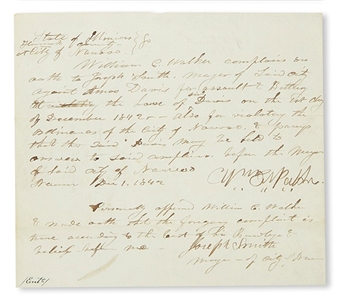 State of Illinois
Hancock County } ss
City of Nauvoo
William E. Walker complains on
oath to Joseph Smith, Mayor of said city
against Amos Davis for assault & Battery
the house of Davis on the 1st day
of December 1842 - also for violating the
ordinances of the City of Nauvoo, & prays
that the said Davis may be held to
answer to said complaint before the Mayor
of said city of Nauvoo
Nauvoo Dec 1, 1842
Personally appeared William E. Walker
& made oath that the foregoing complaint is
true according to the best of his knowledge &
belief before me - Joseph Smith
Mayor of city